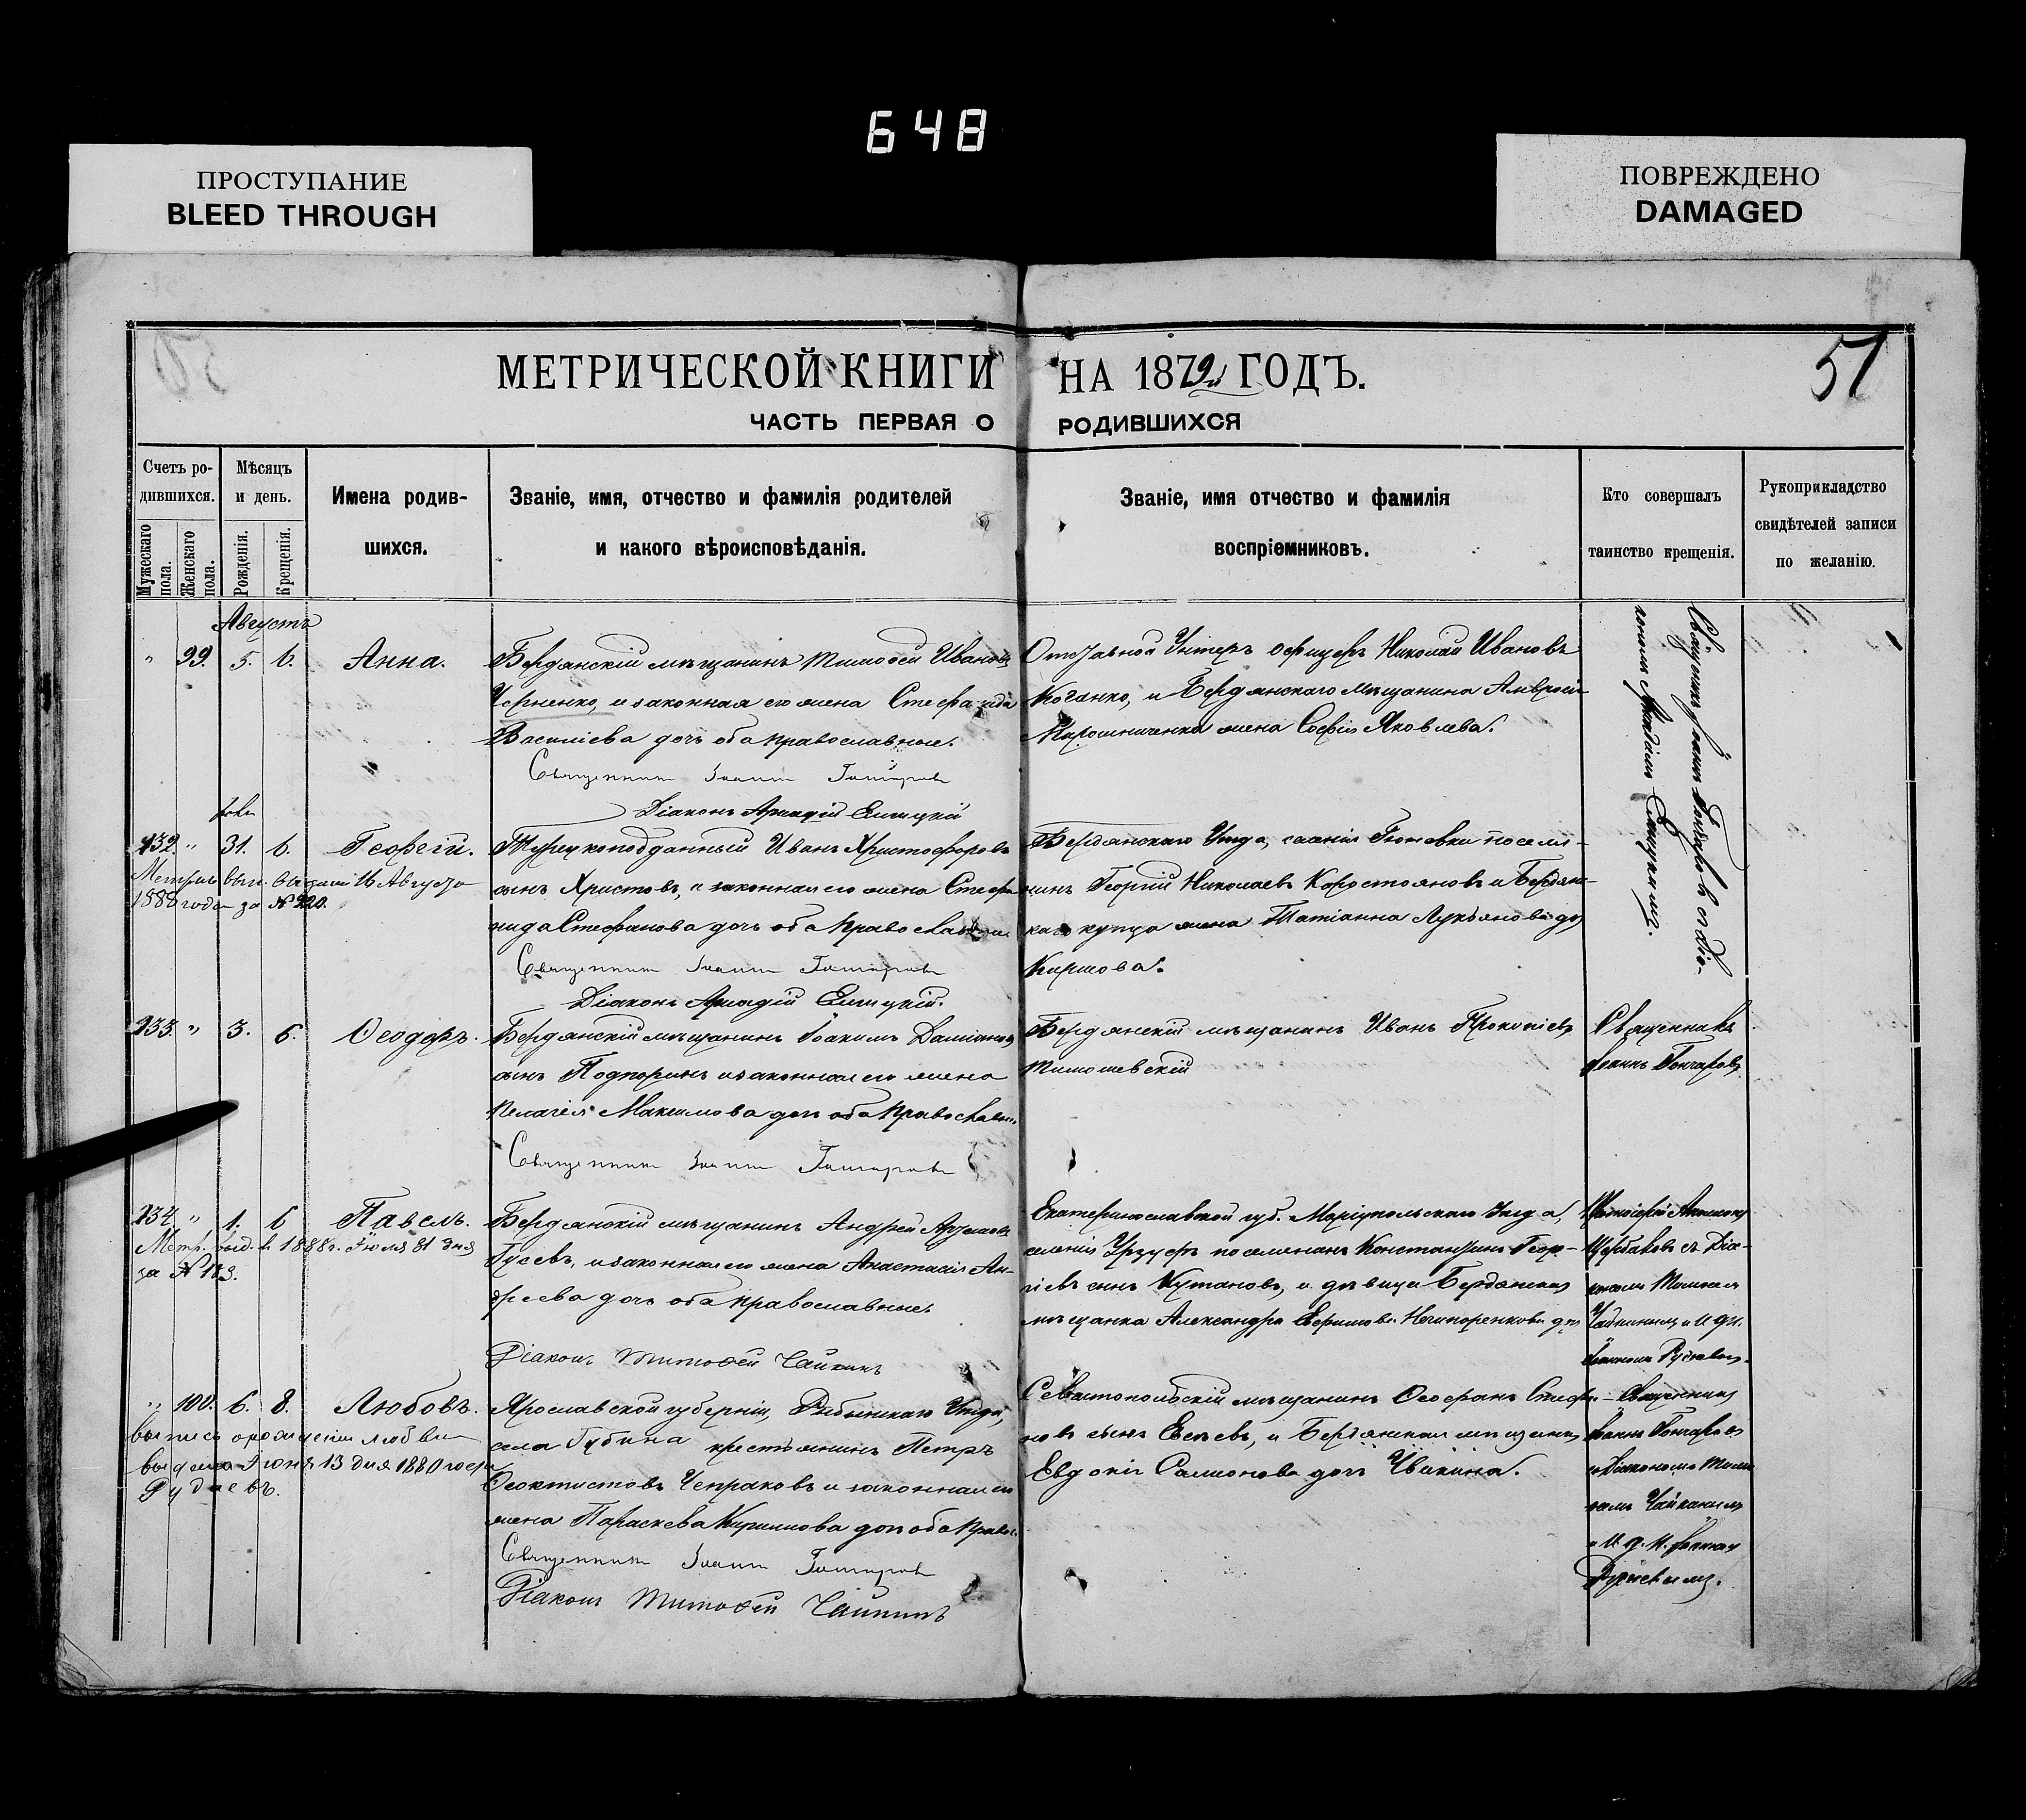 648
ПРОСТУПАНИЕ
BLEED THROUGH
ПОВРЕЖДЕНО
DAMAGED
МЕТРИЧЕСКОЙ КНИГИ НА 1879й ГОДЪ.
51
ЧАСТЬ ПЕРВАЯ О РОДИВШИХСЯ
Счетъ ро-
дившихся.
Мужескаго пола.
Женскаго пола.
Мѣсяцъ
и день.
Рожденія.
Крещенія.
Имена родив-
шихся.
Званіе, имя, отчество и фамилія родителей
и какого вѣроисповѣданія.
Званіе, имя отчество и фамилія
воспріемниковъ.
Кто совершалъ
таинство крещенія.
Рукоприкладство
свидѣтелей записи
по желанію.
Августъ
" 99. 5. 6. Анна.
Бердянскій мѣщанинъ Тимоѳей Ивановъ
Черненко, и законная его жена Стефанида
Василіева дочь оба православные.
Священник Іоанн Гончаров
Діаконъ Аркадій Елицкій
Отставной Унтеръ Офицеръ Николай Ивановъ
Коганко, и Бердянскаго мѣщанина Амвросія
Мирошниченка жена Софія Яковлева.
Священникъ Іоаннъ Гончаровъ съ Діа-
кономъ Аркадіемъ Елицкимъ.
132. " 31. 6. Георгій.
Метрич. вып. выдана 16 Августа
1886 года за № 220.
Турецкоподданный Иванъ Христофоровъ
сынъ Христовъ, и законная его жена Стефа-
нида Стефанова дочь оба православные
Священник Іоанн Гончаров
Діаконъ Аркадій Елицкій.
Бердянскаго Уѣзда, селенія Гюневки поселя-
нинъ Георгій Николаевъ Коростояновъ и Бердянс-
каго купца жена Татіанна Лукьянова дочь
Кирмова.
133. " 3. 6. Ѳеодоръ.
Бердянскій мѣщанинъ Іоакимъ Даміановъ
сынъ Подпоринъ и законная его жена
Пелагея Максимова дочь оба православн.
Священник Іоанн Гончаров
Бердянскій мѣщанинъ Иванъ Прокопіевъ
Тимошевскій
Священникъ
Іоаннъ Гончаровъ
134. " 1. 6 Павелъ.
Метр. выд. в 1888г. Іюля 31 дня
за № 183.
Бердянскій мѣщанинъ Андрей
Гусевъ, и законная его жена Анастасія Ан-
дреева дочь оба православные.
Діаконъ Тимоѳей Чайкинъ
Екатеринославской губ. Маріупольскаго Уѣзда,
селенія Урзуфъ поселянинъ Константинъ Геор-
гіевъ сынъ Кутановъ, и дѣвица Бердянская
мѣщанка Александра Ефимова Нечипоренкова дочь
Щербаковъ съ Діа-
кономъ Тимоѳеем
Чайкинымъ
" 100. 6. 8. Любовь.
выпись о рожденіи Любви
выдана Іюня 13 дня 1880 года
Рудневъ.
Ярославской губерніи, Рыбинскаго Уѣзда,
села Губина крестьянинъ Петръ
Ѳеоктистовъ Чепраковъ и законная его
жена Параскева Кирилова дочь оба правос.
Священник Іоанн Гончаров
Діаконъ Тимоѳей Чайкинъ
Севастопольскій мѣщанинъ Ѳеофанъ Стефа-
новъ сынъ Евсѣевъ, и Бердянская мѣщанка
Евдокія Самсонова дочь Чвикина.
Священникъ
Іоаннъ Гончаровъ
и Діакономъ Тимо-
ѳеемъ Чайкинымъ